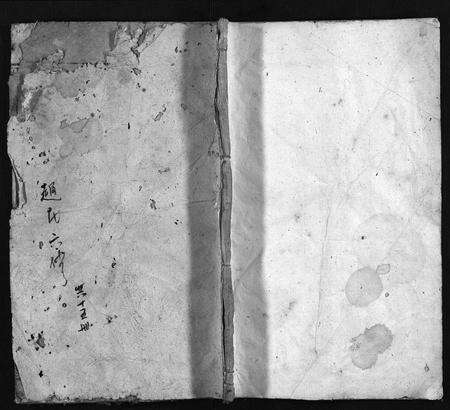 趙氏六修
共十五冊